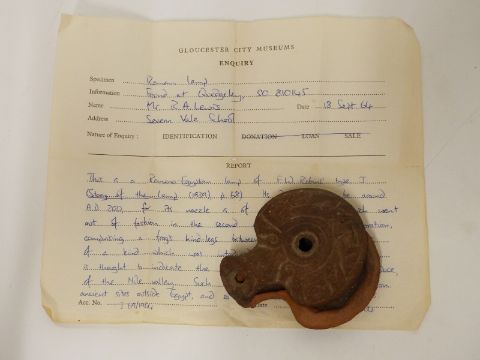 GLOUCESTER CITY MUSEUMS
ENQUIRY
Specimen Roman lamp
Information Found at Quedgeley, SO 810145
Name Mr. R.A. Lewis Date 18 Sept 64
Address Severn Vale School
Nature of Enquiry: IDENTIFICATION DONATION LOAN SALE
REPORT
This is a Romano-Egyptian lamp of F.W. Robins' type J
(Story of the Lamp (1939) p. 68) He around
A.D. 200, for its nozzle is of went
out of fashion in the second
comprising a frog's hind-legs between
of a kind which was
is thought to indicate the
of the Nile valley. Such
ancient sites outside Egypt, and
Acc. No.